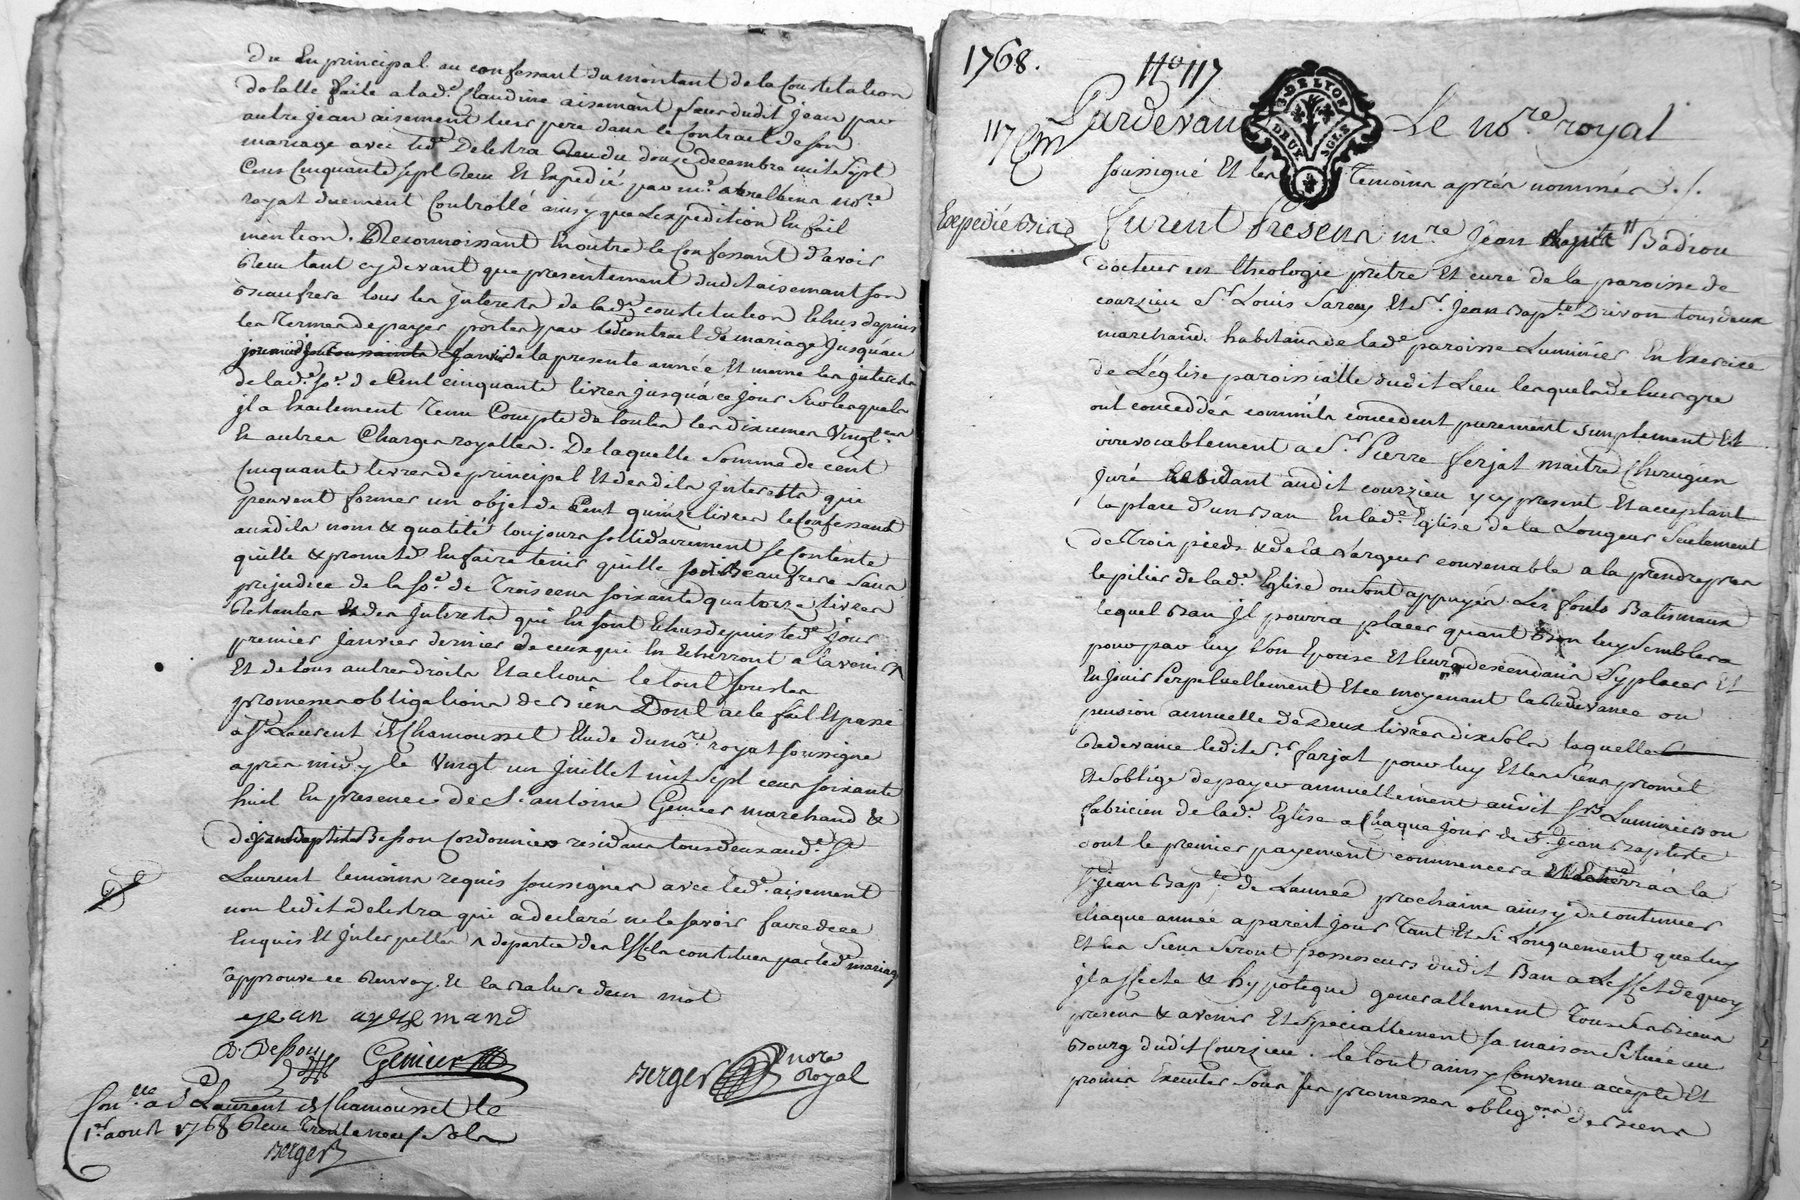 du En principal au confessant du montant de la Constitution
dotalle faite a lad.e Claudine aisemant sœur dudit jean par
autre jean aisement leur pere dans le Contract de son
mariage avec led. Delestra Rendu douze decembre mil sept
Cens Cinquante sept Reçu Et Expedié par m.e nore
royal duement Controllé ainsy que L'expedition En fait
mention. Reconnoissant En outre le Confessant d'avoir
Reçu tant cy devant que presentement dudit aisemant son
Beaufrere tous les jnterests de lad.e constitution Echus depuis
les Termes de payer portés par led. contract de mariage jusqu'au
janvier de la presente année Et meme les jnterests
de lad.e so.e de Cent cinquante livres jusqu'a ce jour sur lesquels
jl a Exactement Tenu Compte de toutes les dixiemes Vingt.mes
Et autres Charges royalles. De laquelle somme de cent
Cinquante livres de principal Et desdits jnterests qui
peuvent former un objet de Cent quinze livres le Confessant
auxdits noms & qualité toujours sollidairement se Contente
quitte & promet En faire tenir quitte sondit Beaufrere sans
prejudice de la so.e de Trois cens soixante quatorze livres
Restantes Et des jnterests qui En sont Echus depuis led.e jour
premier janvier dernier de ceux qui En Echerront a l'avenir
Et de tous autres droits Et actions le tout sous les
promesses obligations de Biens Dont acte fait Et passé
a St. Laurent de Chamousset Etude du no.re royal soussigné
après midy le Vingt un juillet mil sept cens soixante
huit En presence de S. antoine Genier marchand &
de jean Baptiste Besson Cordonnier residans tous deux aud. St
Laurent temoins requis soussignés avec led. aisement
non ledit Delestra qui a declaré ne le savoir faire de ce
Enquis Et jnterpellés departie des Effets constitués par led. mariage
approuve ce Renvoy. Et la rature d'un mot
jean ayzemand
B. Besson
Genier
Berger nore
royal
Con.lle a St Laurent de Chamousset le
1.er aoust 1768 Reçu Trente neuf sols
Berger
1768.
No 117
Pardevant Le no.re royal
G. DE LYON
DEUX SOLS
117
soussigné Et les Temoins après nommés ./.
Expedié
furent Presens m.re Jean Badiou
docteur en theologie prêtre Et curé de la paroisse de
courzieu S.r Louis Et S.r Jean Bap.te Drivon tous deux
marchands habitans de lad.e paroisse Luminiers En Exercice
de L'église paroissialle dudit Lieu lesquels de leur gré
ont conceddés comm'ils concedent purement simplement Et
irrevocablement a S.r Pierre ferjat maitre Chirugien
Juré habitant audit courzieu y cy present Et acceptant
la place d'un Ban En lad.e Eglise de la Longeur seulement
de Trois pieds & de la Largeur convenable a la prendre près
le pilier de lad.e Eglise ou sont appuyés Les fonts Batismaux
lequel Ban jl pourra placer quant Bon luy semblera
pour par luy Son Epouse Et leurs descendans s'y placer Et
En jouir Perpetuellement Et ce moyenant la Redevance ou
pension annuelle de Deux livres dix sols laquelle
Redevance ledit S.r farjat pour luy Et les Siens promet
Et s'oblige de payer annuellement audit srs Luminiers ou
fabricien de lad.e Eglise a Chaque jour de St. Jean Baptiste
dont le premier payement commencera a la
St Jean Bap.te de L'année prochaine ainsy de continuer
chaque année a pareit jours Tant Et Si Longuement que luy
Et les Siens Seront possesseurs dudit Ban a L'effet de quoy
jl affecte & hypoteque generallement Tous ses Biens
presens & avenir Et specialement sa maison Située au
Bourg dudit Courzieu. le tout ainsy Convenu accepté Et
promis Executer Sous les promesses oblig.ons de Biens